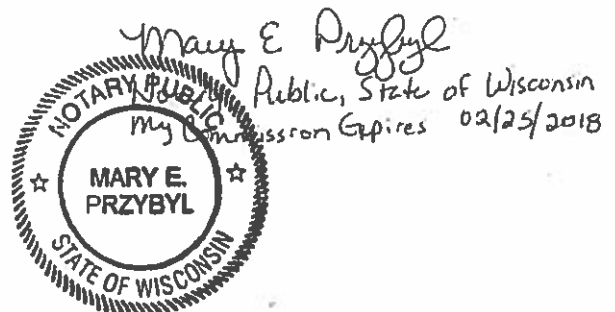 Mary E Przybyl
Notary Public, State of Wisconsin
My Commission Expires 02/25/2018
NOTARY PUBLIC
MARY E.
PRZYBYL
STATE OF WISCONSIN